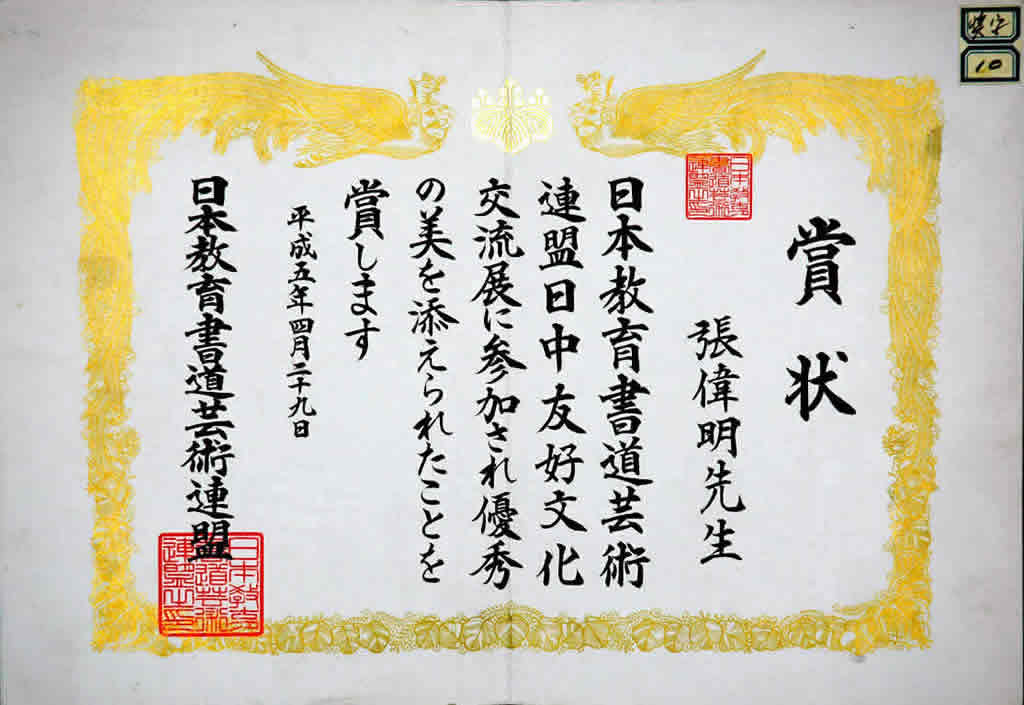 賞状
張偉明先生
日本教育書道芸術
連盟日中友好文化
交流展に参加され優秀
の美を添えられたことを
賞します
平成五年四月二十九日
日本教育書道芸術連盟
日本教育
書道芸術
連盟之印
10